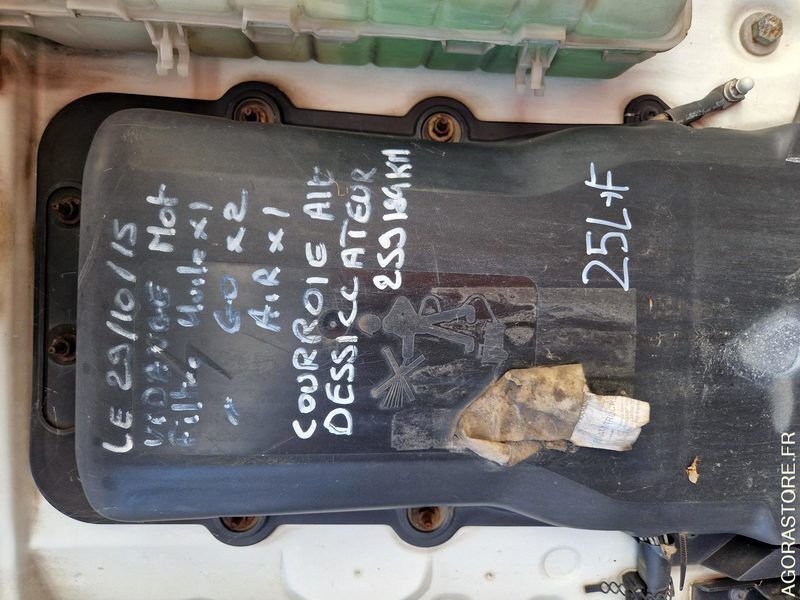 LE 29/10/15
VIDANGE Mot
Filtre Huile x1
" GO x2
AIR x1
COURROIE Alt
DESSICCATEUR
259189 KM
25L+F
AGORASTORE.FR